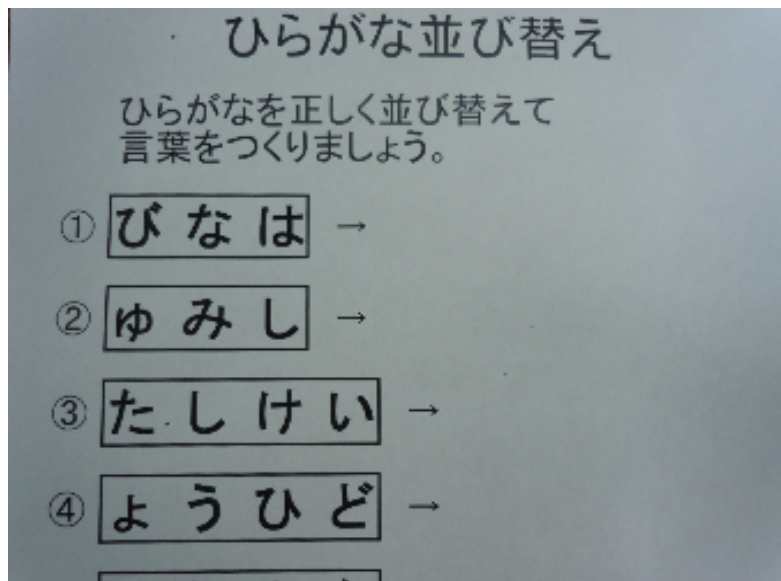 ひらがな並び替え
ひらがなを正しく並び替えて
言葉をつくりましょう。
① び な は →
② ゅ み し →
③ た し け い →
④ ょ う ひ ど →